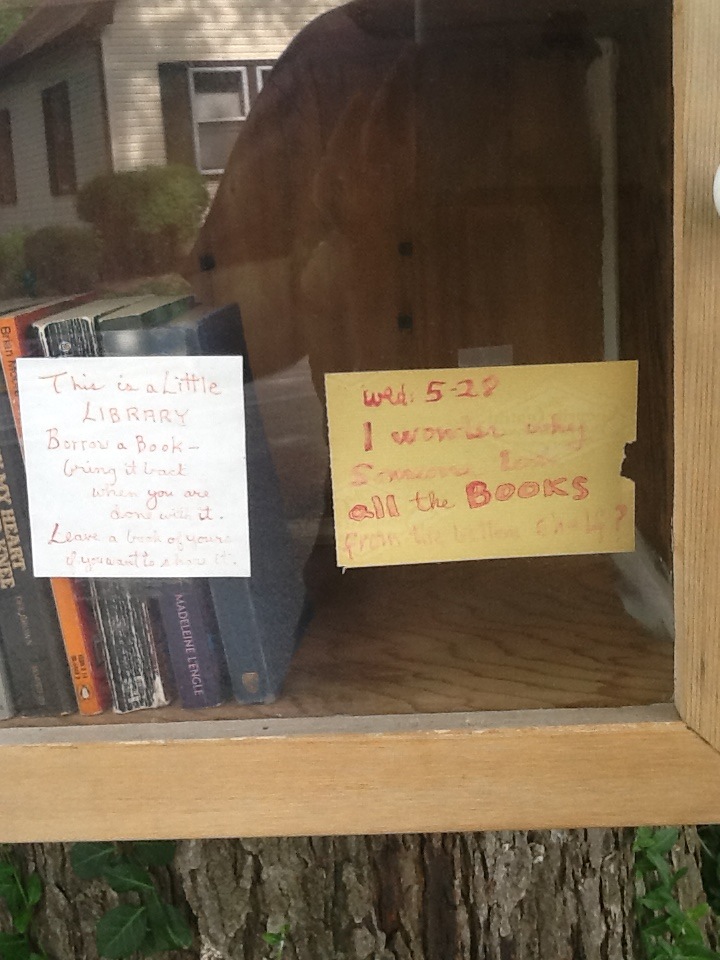 This is a Little
LIBRARY
Borrow a Book -
bring it back
when you are
done with it.
Leave a book of yours
if you want to share it.
Wed. 5-28
I wonder why
Someone took
all the BOOKS
from the bottom shelf?
MY HEART
MADELEINE L'ENGLE
Brian